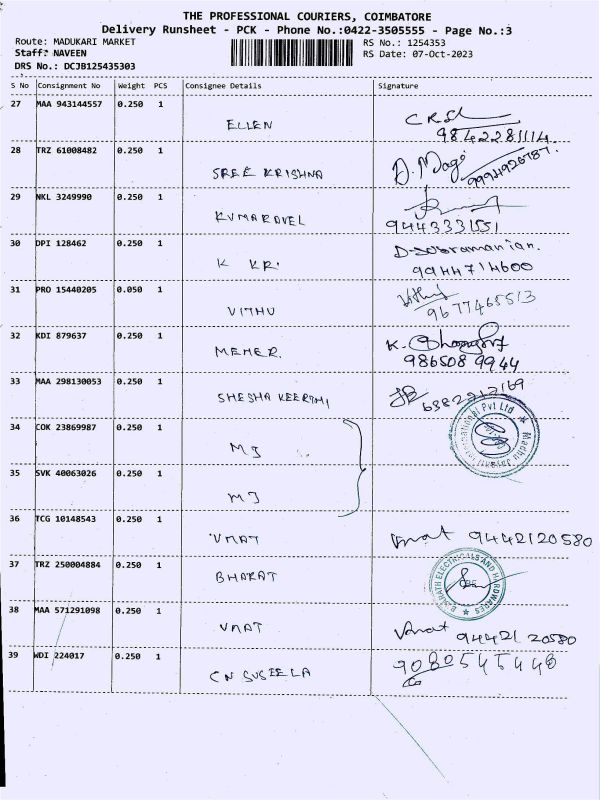 THE PROFESSIONAL COURIERS, COIMBATORE
Delivery Runsheet - PCK - Phone No.:0422-3505555 - Page No.:3
Route: MADUKARI MARKET RS No.: 1254353
Staff: NAVEEN RS Date: 07-Oct-2023
DRS No.: DCJB125435303
S No Consignment No Weight PCS Consignee Details Signature
27 MAA 943144557 0.250 1
ELLEN
9842281114
28 TRZ 61008482 0.250 1
SREE KRISHNA
9994926787
29 NKL 3249990 0.250 1
KUMARAVEL
9443331551
30 DPI 128462 0.250 1
K KR. D-Subramanian.
9944714600
31 PRO 15440205 0.050 1
VITHU
9677465513
32 KDI 879637 0.250 1
MEHER.
986508 9944
33 MAA 298130053 0.250 1
SHESHA KEERTHI
6382212169
34 COK 23869987 0.250 1
MJ
Madhu Jayanti International Pvt Ltd
35 SVK 40063026 0.250 1
MJ
36 TCG 10148543 0.250 1
VMAT 9442120580
37 TRZ 250004884 0.250 1
BHARAT
BHARATH ELECTRICALS AND HARDWARES
38 MAA 571291098 0.250 1
VMAT
94421 20580
39 WDI 224017 0.250 1
CN SUSEELA 9080545440